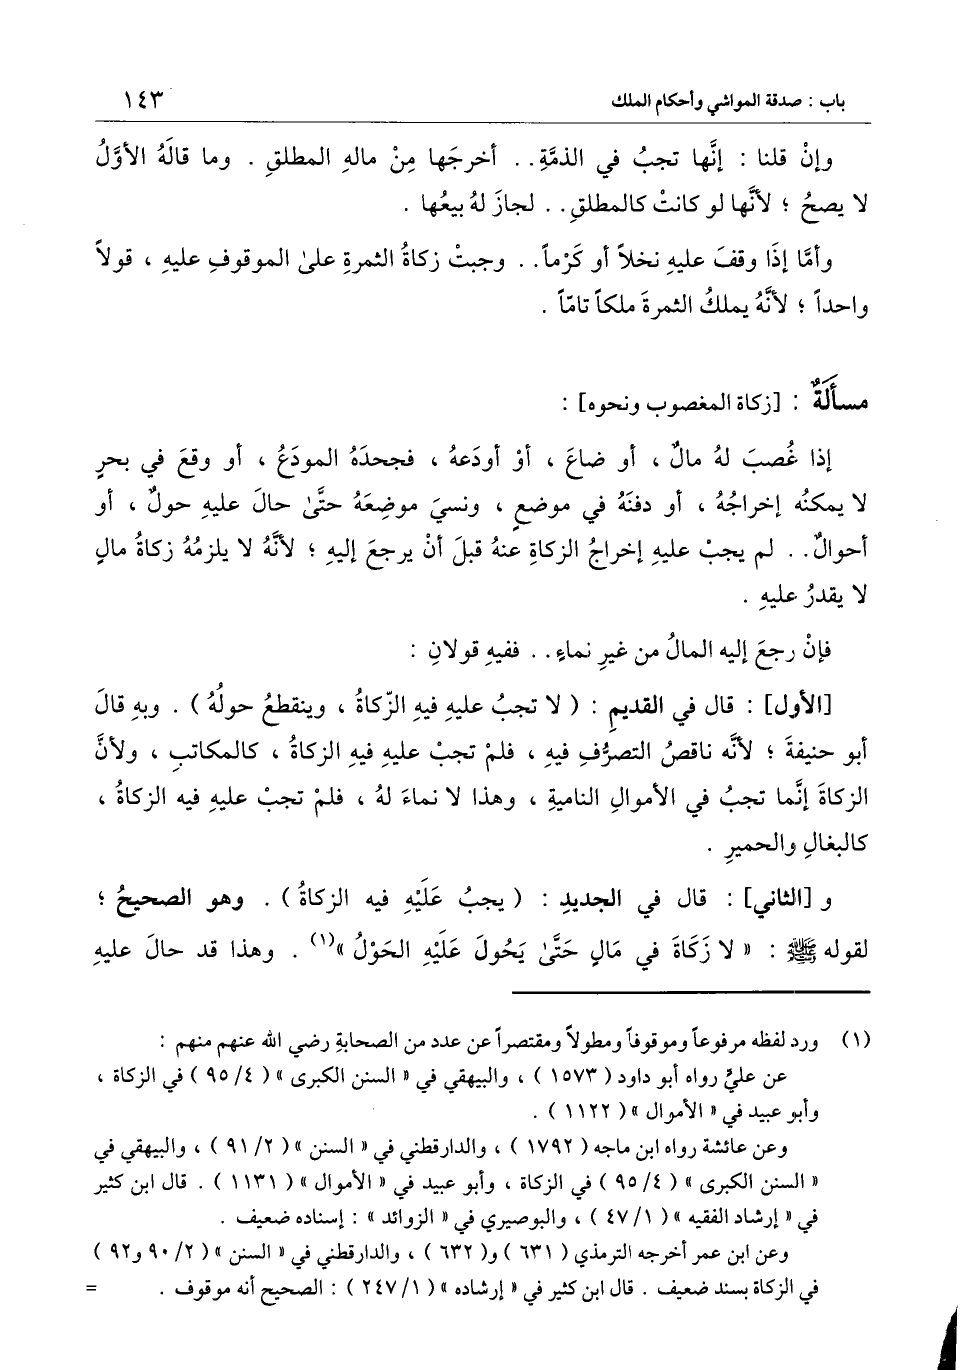 باب : صدقة المواشي وأحكام الملك ١٤٣
وإنْ قلنا : إنَّها تجبُ في الذمَّةِ . . أخرجَها مِنْ مالهِ المطلقِ . وما قالَهُ الأوَّلُ
لا يصحُ ؛ لأنَّها لو كانتْ كالمطلقِ . . لجازَ لهُ بيعُها .
وأمَّا إذَا وقفَ عليهِ نخلاً أو كَرْماً . . وجبتْ زكاةُ الثمرةِ علىٰ الموقوفِ عليهِ ، قولاً
واحداً ؛ لأنَّهُ يملكُ الثمرةَ ملكاً تامّاً .
مسأَلَةٌ : [زكاة المغصوب ونحوه] :
إذا غُصبَ لهُ مالٌ ، أو ضاعَ ، أوْ أودَعهُ ، فجحدَهُ المودَعُ ، أو وقعَ في بحرٍ
لا يمكنُه إخراجُهُ ، أو دفنَهُ في موضعٍ ، ونسيَ موضِعَهُ حتَّىٰ حالَ عليهِ حولٌ ، أو
أحوالٌ . . لم يجبْ عليهِ إخراجُ الزكاةِ عنهُ قبلَ أنْ يرجعَ إليهِ ؛ لأنَّهُ لا يلزمُهُ زكاةُ مالٍ
لا يقدرُ عليهِ .
فإنْ رجعَ إليه المالُ من غيرِ نماءٍ . . ففيهِ قولانِ :
[الأول] : قال في القديمِ : ( لا تجبُ عليهِ فيهِ الزّكاةُ ، وينقطعُ حولُهُ ) . وبهِ قالَ
أبو حنيفةَ ؛ لأنَّه ناقصُ التصرُّفِ فيهِ ، فلمْ تجبْ عليهِ فيهِ الزكاةُ ، كالمكاتبِ ، ولأنَّ
الزكاةَ إنَّما تجبُ في الأموالِ الناميةِ ، وهذا لا نماءَ لهُ ، فلمْ تجبْ عليهِ فيه الزكاةُ ،
كالبغالِ والحميرِ .
و [الثاني] : قال في الجديدِ : ( يجبُ عَلَيْهِ فيه الزكاةُ ) . وهو الصحيحُ ؛
لقوله ﷺ : « لا زَكَاةَ في مَالٍ حَتَّىٰ يَحُولَ عَلَيْهِ الحَوْلُ »(١) . وهذا قد حالَ عليهِ
(١) ورد لفظه مرفوعاً وموقوفاً ومطولاً ومقتصراً عن عدد من الصحابةِ رضي الله عنهم منهم :
عن عليٍّ رواه أبو داود ( ١٥٧٣ ) ، والبيهقي في « السنن الكبرى » ( ٤/ ٩٥ ) في الزكاة ،
وأبو عبيد في « الأموال » ( ١١٢٢ ) .
وعن عائشة رواه ابن ماجه ( ١٧٩٢ ) ، والدارقطني في « السنن » ( ٢/ ٩١ ) ، والبيهقي في
« السنن الكبرى » ( ٤/ ٩٥ ) في الزكاة ، وأبو عبيد في « الأموال » ( ١١٣١ ) . قال ابن كثير
في « إرشاد الفقيه » ( ١/ ٤٧ ) ، والبوصيري في « الزوائد » : إسناده ضعيف .
وعن ابن عمر أخرجه الترمذي ( ٦٣١ ) و( ٦٣٢ ) ، والدارقطني في « السنن » ( ٢/ ٩٠ و٩٢ )
في الزكاة بسند ضعيف . قال ابن كثير في « إرشاده » ( ١/ ٢٤٧ ) : الصحيح أنه موقوف . =